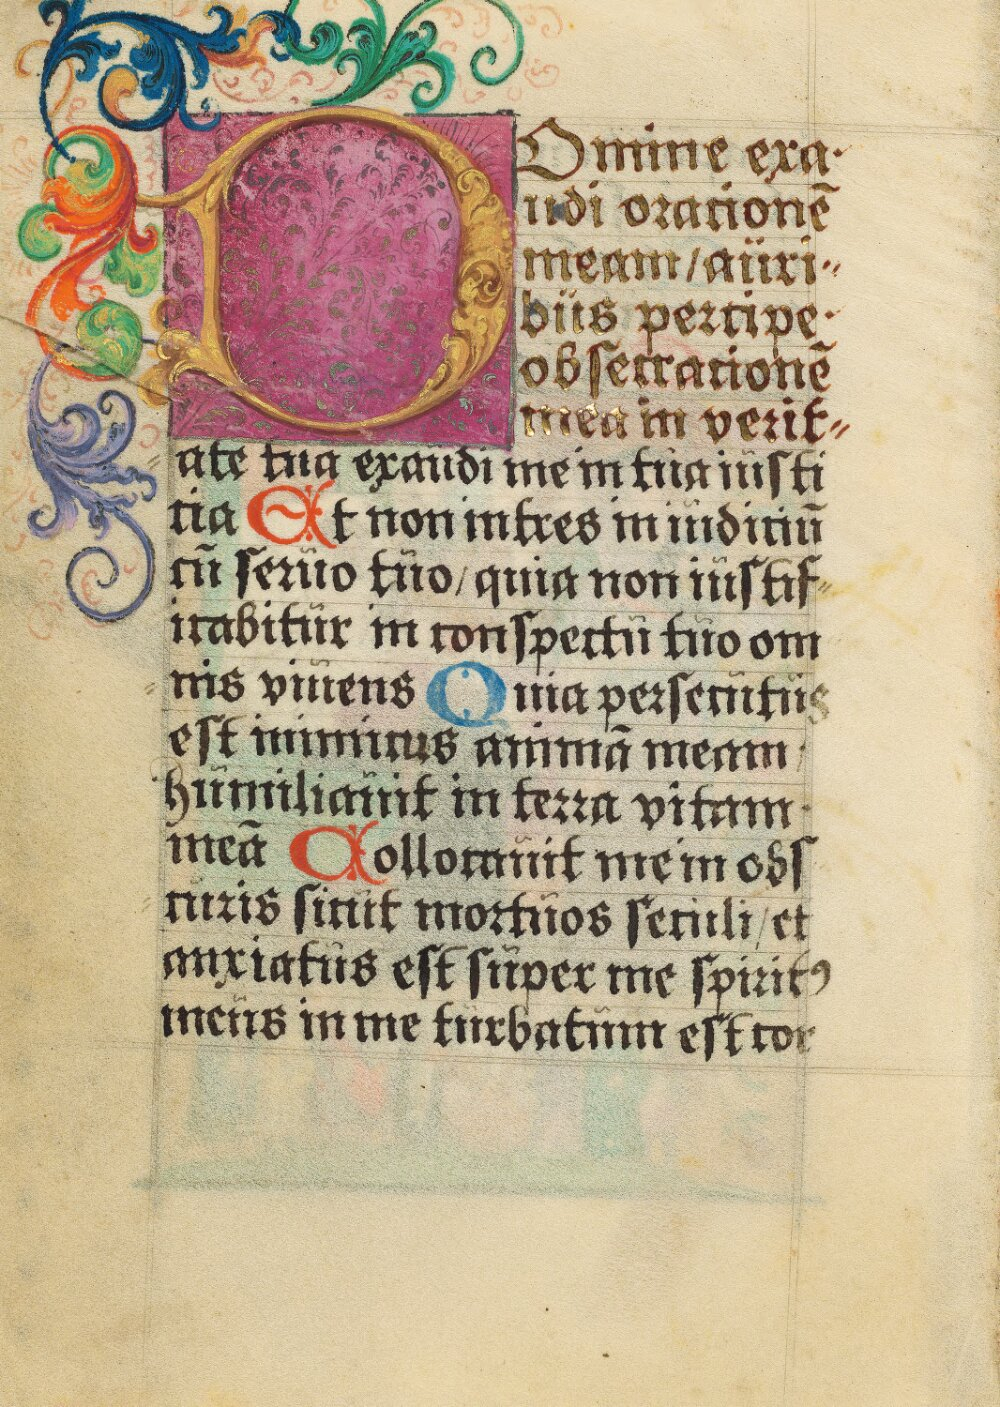 Domine exa-
udi orationē
meam/auri-
bus percipe
obsecrationē
mea in verit-
ate tua exaudi me in tua iusti
tia Et non intres in iudiciū
cū seruo tuo/quia non iustif-
icabitur in conspectu tuo om
nis viuens Quia persecutus
est inimicus animā meam
humiliauit in terra vitam
meā Collocauit me in obs
curis sicut mortuos seculi/et
anxiatus est super me spiritꝰ
meus in me turbatum est cor